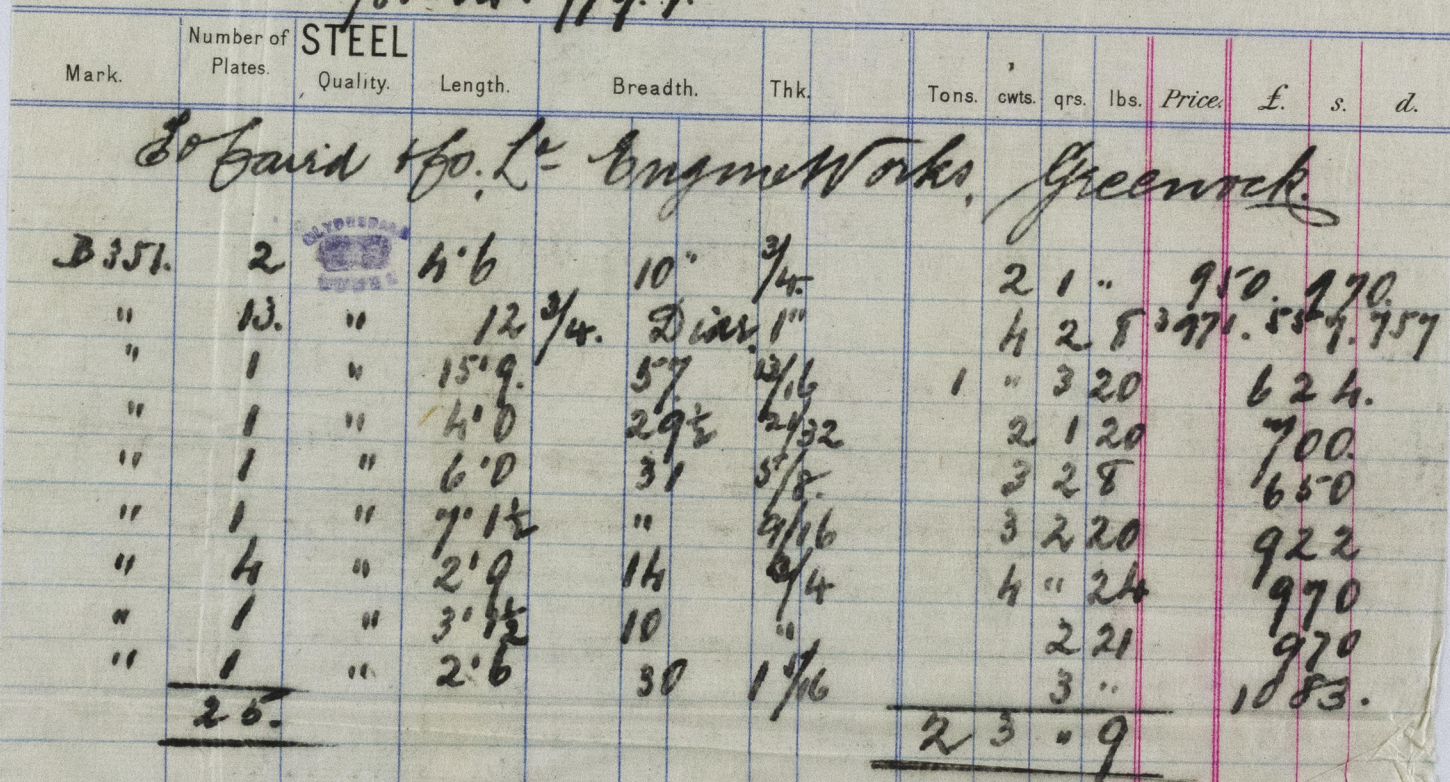 Number of STEEL
Mark. Plates. Quality. Length. Breadth. Thk. Tons. cwts. qrs. lbs. Price. £. s. d.
To Caird & Co. Ld Engine Works, Greenock.
CLYDESDALE
B351. 2 4'6 10" 3/4. 2 1 " 950. 970.
" 13. " 12 3/4. Diar. 1" 4 2 8 3971. 557. 757
" 1 " 15'9. 57 13/16 1 " 3 20 624.
" 1 " 4'0 29½ 21/32 2 1 20 700.
" 1 " 6'0 31 5/8. 3 2 8 650
" 1 " 7'1½ " 9/16 3 2 20 922
" 4 " 2'9 14 3/4 4 " 24 970
" 1 " 3'1½ 10 " 2 21 970
" 1 " 2'6 30 1 1/16 3 " 1083.
25. 2 3 " 9